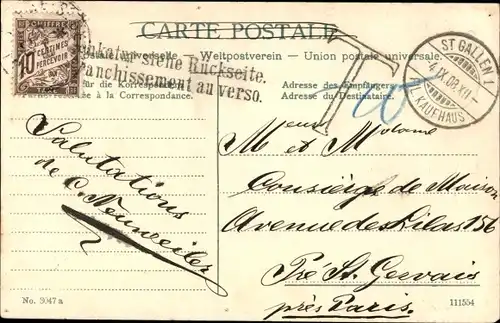 CARTE POSTALE
CHIFFRE
10 CENTIMES À PERCEVOIR
TAXE
postale universelle — Weltpostverein — Union postale universale.
Frankatur siehe Rückseite.
Affranchissement au verso.
für die Korrespondenz
à la Correspondance.
Adresse des Empfängers
Adresse du Destinataire.
T
10
ST GALLEN 1
4.IX.08.XII
KAUFHAUS
Salutations
de C. Neuweiler
M et Madame
Consièrge de Maison
Avenue des Lilas 156
Pré St. Gervais
près Paris.
No. 3047 a
111554